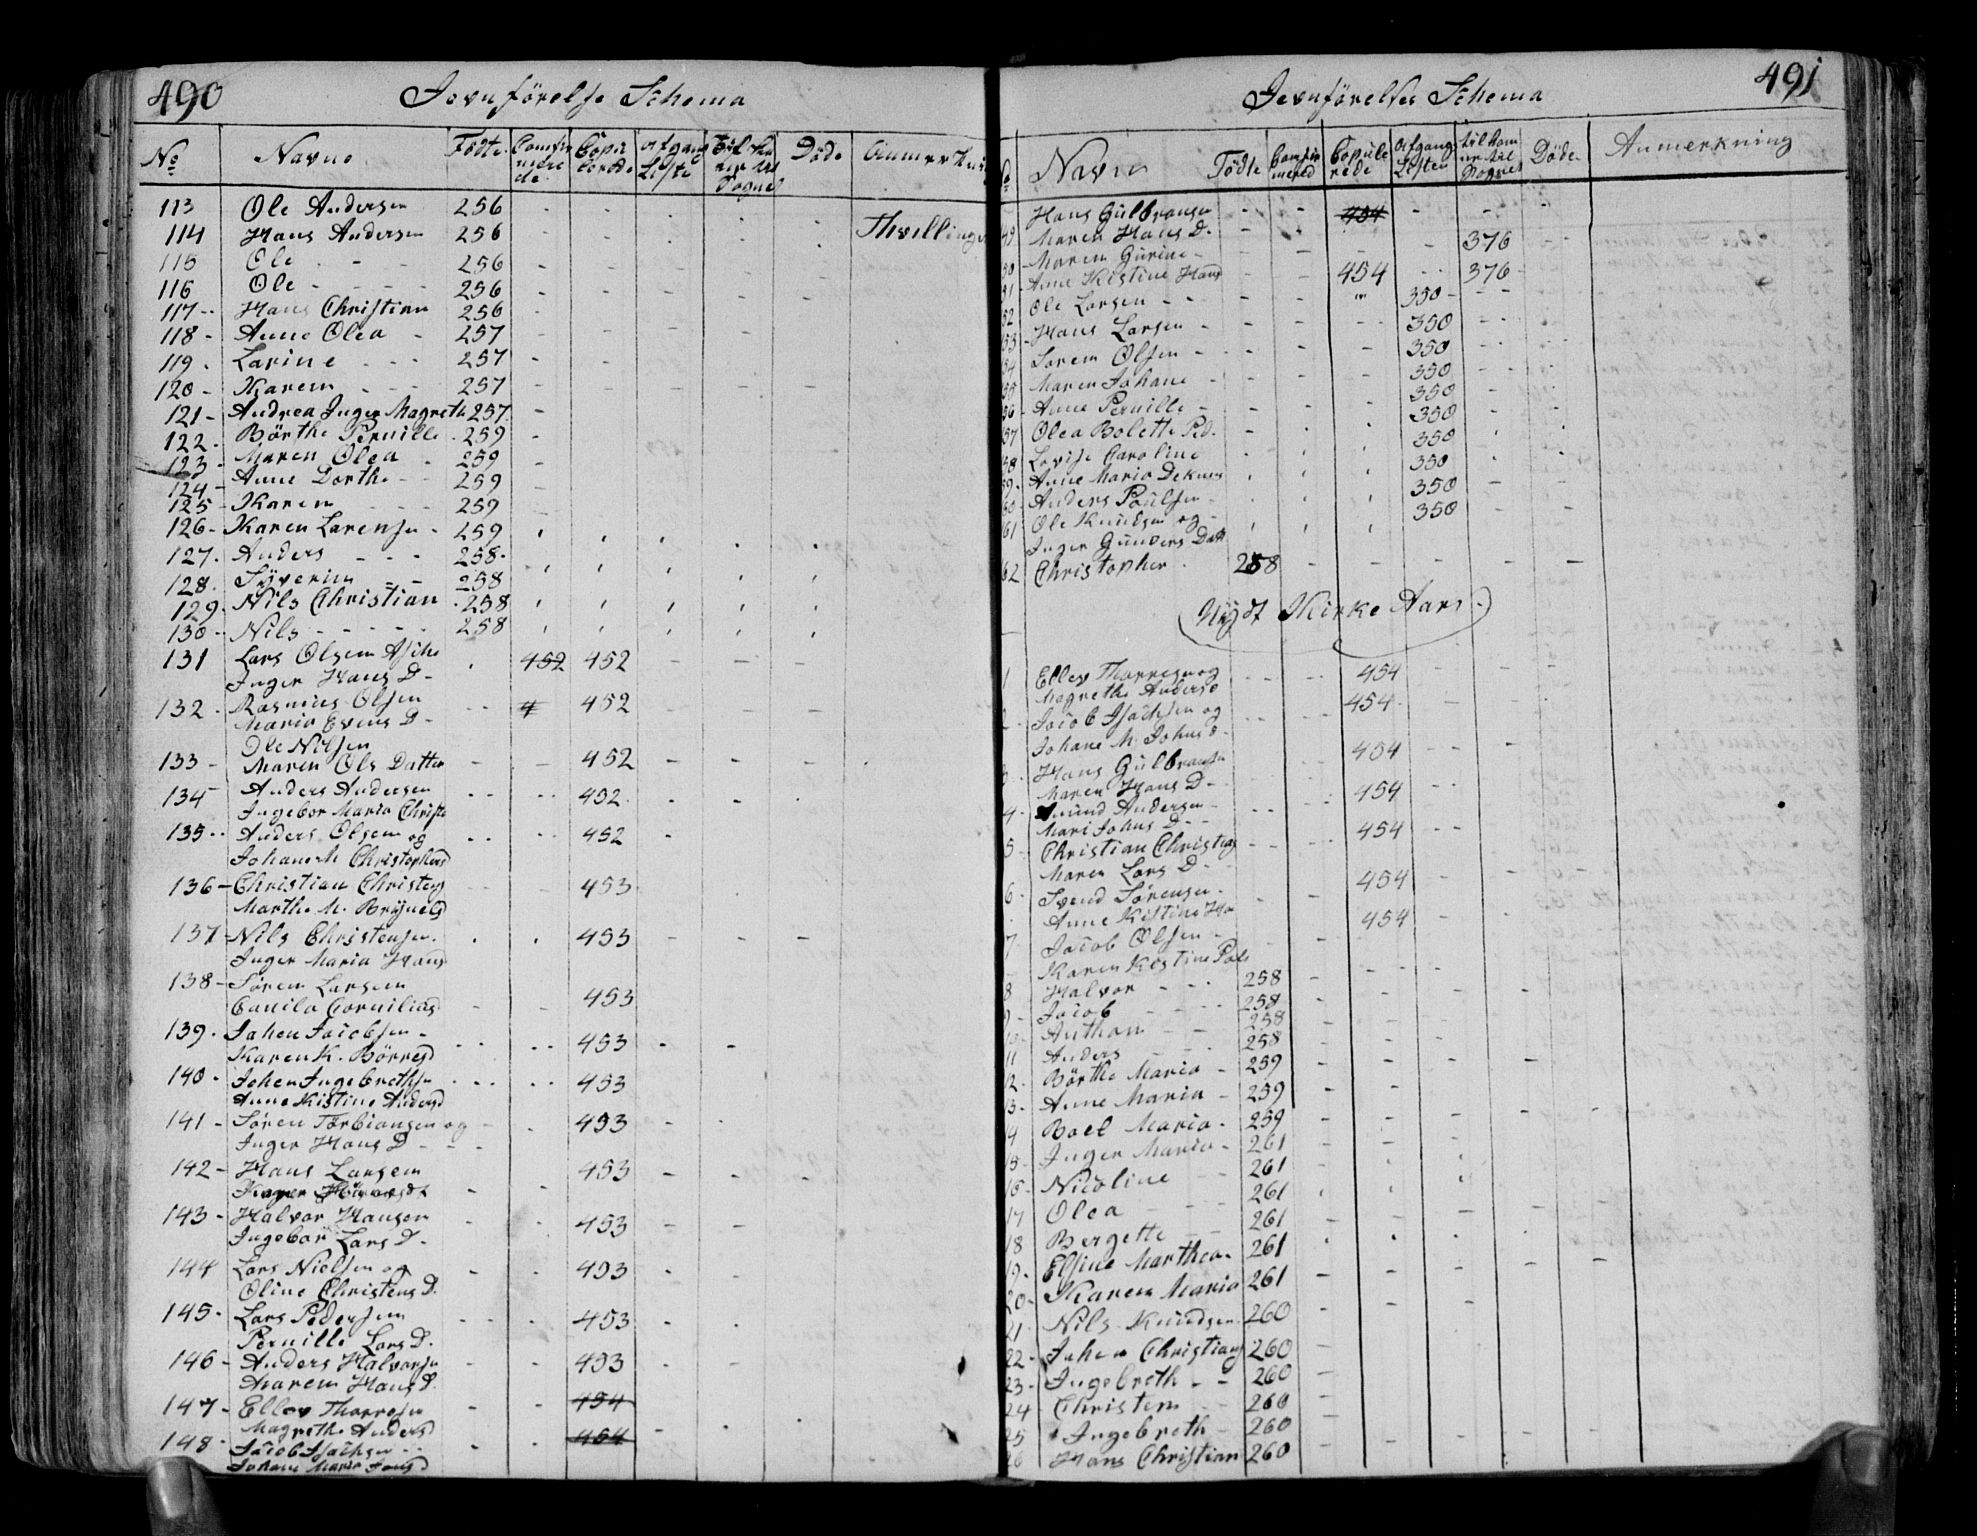 490
Jevnförelse Schema
No Navne Födte Confirmerede Copulerede Afgangs Liste Til kommer til Sognet Döde Anmerkni
113 Ole Andersen 256 - - - - - Thvillinge
114 Hans Andersen 256
115 Ole - - 256
116 Ole - - - - 256
117 - Hans Christian 256
118 - Anne Olea - 257
119 . Larine - - - 257
120 - Karen - - - 257
121 - Andrea Inger Magrethe 257
122 - Börthe Pernille . 259
123 - Maren Olea . 259
124 - Anne Dorthe - - 259
125 - Karen - - - - 259
126 - Karen Larense - 259
127 . Anders - - - 258.
128 . Syverin - - 258
129 . Nils Christian . 258
130 - Nils - - - - - 258
131 Lars Olsen Asche 452 452
Inger Hans D -
132 . Rasmus Olsen 4 452
Maria Evens D -
Ole Nilsen
133 - Maren Ols Datter - - 452
134 Anders Andersen 452
Ingebor Maria Christe
135 - Anders Olsen og 452
Johane M Christophersd
136 - Christian Christens 453
Marthe M. Brynels D
137 - Nils Christensen. 453
Inger Maria Hans
138 - Sören Larsen
Canila Cornilias 453
139 . Johen Jacobsen -
Karen K. Börresd 453
140 . Johen Ingebrethsen 453
Anne Kistine Andersd
141 - Sören Torbiönsen og 453
Inger Hans D - -
142 - Hans Larsen 453
143 - Halvor Hansen 453
Ingebor Lars D -
144 Lars Nielsen og 453
Oline Christens D.
145 - Lars Pedersen 453
Pernille Lars D.
146 - Anders Halvorsen 453
Maren Hans D.
147 - Ellev Thorresen 454
Magrethe Andersd
148 - Jacob Isachsen - - 454
Johane Maria Jonsd
491
Jevnförelses Schema
No Navne Födte Confirmered Copulerede Afgangs Listen tilkommer til Sognet Döde Anmerkning
Hans Gulbransen - - 454 - - -
49 Maren Hans D. -
50 Maren Gurine - 376
51 Anne Kistine Hans 454 - - 376
52 Ole Larsen - - - - 350 -
53 - Hans Larsen - 350
54 Soren Olsen - 350
55 Maren Johane 350
56 - Anne Pernille - 350
57 Olea Bolette Ped. 350
58 Lovise Caroline 350
59 - Anne Maria Deknes 350
60 - Anders Poulsen - 350
61 Ole Knudsen og - 350
Inger Gunders Datt
62 Christopher . 258 - - - - - -
(Nydt Kirke Aars.)
1 Ellev Thorresen og 454
Magrethe Anders D
2 - Jacob Isachsen og 454
Johane M. Johns D -
3 - Hans Gulbransen 454
Maren Hans D -
4 - Amund Andersen - 454
Mari Johns D - -
5 - Christian Christians 454
Maren Lars D -
6 - Svend Sörensen - 454
Anne Kistine Ha
7 Jacob Olsen - 454
Karen Kistine Pals
8 Halvor - - - 258
9 - Jacob - - - - 258
10 - Anthon - - 258
11 Anders - - - 258
12 - Börthe Maria - 259
13 - Anne Maria - 259
14 Boel Maria - 259
15 - Inger Maria - 261
16 - Nicoline - - 261
17 Olea - - - 261
18 Bergette - - 261
19 - Elsine Marthea - 261
20 - Karen Maria 261
21 Nils Knudsen 260
22 - Johen Christians 260
23 - Ingebreth - - 260
24 Christen - 260
25 Ingebreth 260
26 Hans Christian 260